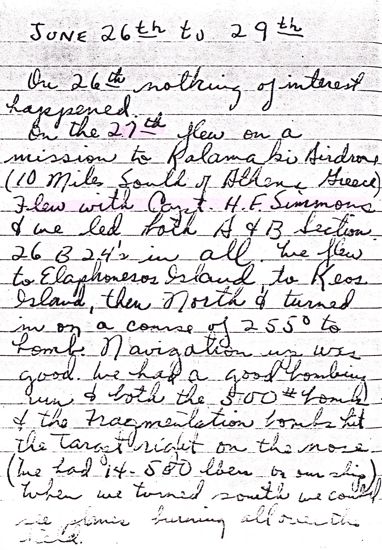 JUNE 26th to 29th
On 26th nothing of interest
happened.
On the 27th flew on a
mission to Kalamaki Airdrome
(10 Miles South of Athens, Greece)
Flew with Capt. H.F. Simmons
& we led both A & B Section
26 B 24's in all. We flew
to Elaphonesos Island, to Keos
Island, then North & turned
in on a course of 255° to
bomb. Navigation was
good. We had a good bombing
run & both the 500# bombs
& the Fragmentation bombs hit
the target right on the nose
(We had 14-500 lbers on our ship)
When we turned south we could
see planes burning all over the
field.